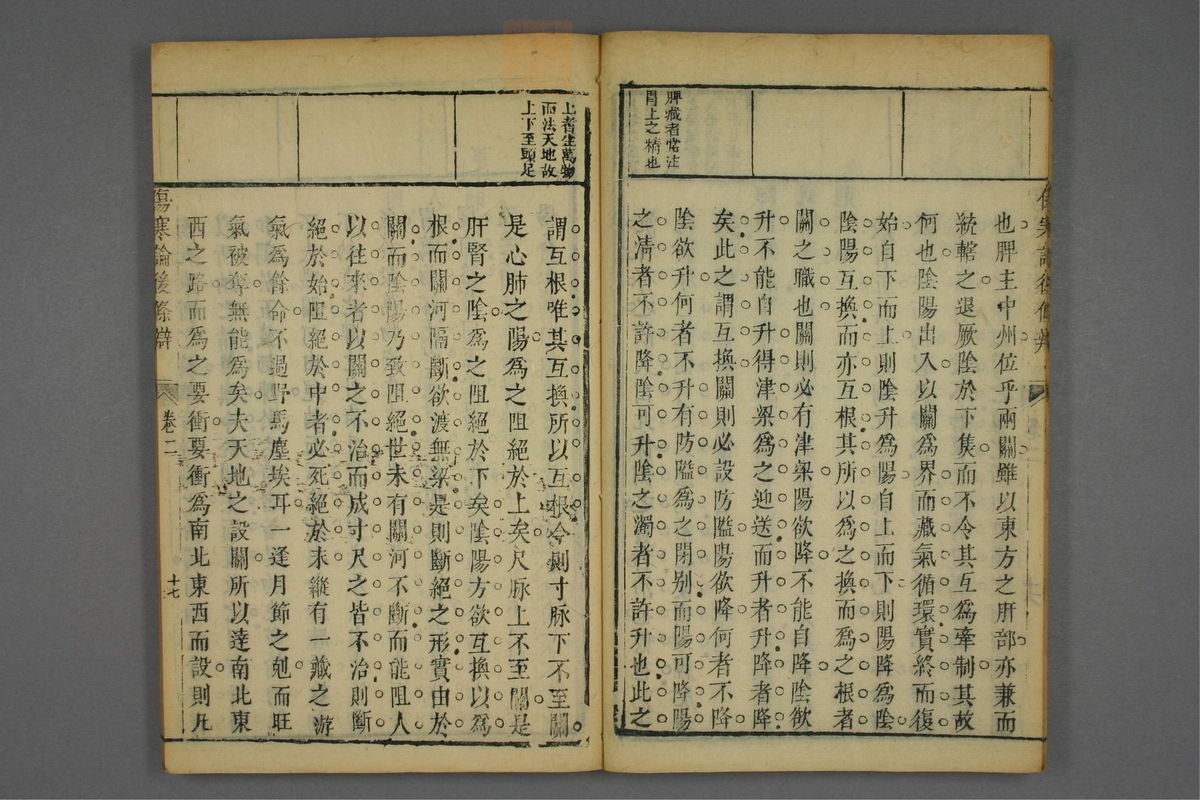 脾臟者常注
胃上之精也
也脾主中州位乎兩關雖以東方之肝部亦兼而
統轄之退厥陰於下隻而不令其互爲牽制其故
何也陰陽出入以關爲界而藏氣循環實終而復
始自下而上則陰升爲陽自上而下則陽降爲陰
陰陽互換而亦互根其所以爲之換而爲之根者
關之職也關則必有津梁陽欲降不能自降陰欲
升不能自升得津梁爲之迎送而升者升降者降
矣此之謂互換關則必設防隘陽欲降何者不降
陰欲升何者不升有防隘爲之閉别而陽可降陽
之濁者不許降陰可升陰之濁者不許升也此之
上者生萬物
而法天地故
上下至頭足
謂互根唯其互換所以互根今則寸脉下不至關
是心肺之陽爲之阻絕於上矣尺脉上不至關是
肝腎之陰爲之阻絕於下矣陰陽方欲互換以爲
根而關河隔斷欲渡無梁是則斷絕之形實由於
關而陰陽乃致阻絕世未有關河不斷而能阻人
以往來者以關之不治而成寸尺之皆不治則斷
絕於始阻絕於中者必死絕於末縱有一藏之游
氣爲餘命不過野馬塵埃耳一逢月節之剋而旺
氣被奪無能爲矣夫天地之設關所以達南北東
西之路而爲之要衝要衝爲南北東西而設則凡
傷寒論後條辯
卷二
十七